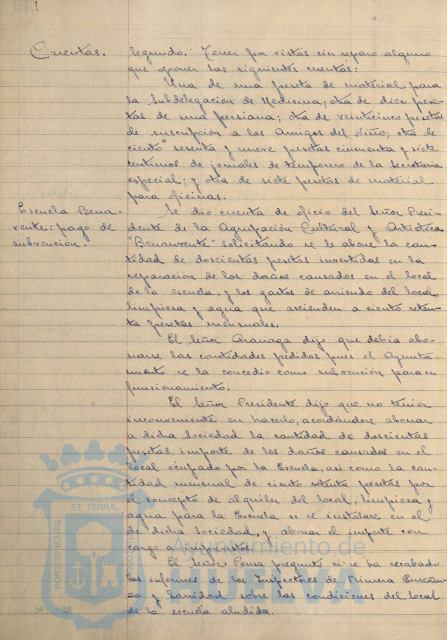 Cuentas.
Segundo. Tener por vistas sin reparo alguno
que oponer las siguientes cuentas:
Una de una peseta de material para
la Subdelegación de Medicina; otra de diez pese-
tas de una persiana; otra de veinticinco pesetas
de suscripción a los Amigos del Niño; otra de
ciento sesenta y nueve pesetas cincuenta y siete
centimos de jornales de temporero de la Secretaria
especial; y otra de siete pesetas de material
para oficinas.
Escuela Bena-
vente: pago de
subvención.
Se dio cuenta de oficio del Señor Presi-
dente de la Agrupación Cultural y Artística
"Benavente" solicitando se le abone la can-
tidad de doscientas pesetas invertidas en la
reparación de los daños causados en el local
de la escuela, y los gastos de arriendo del local,
limpieza y agua que ascienden a ciento seten-
ta pesetas mensuales.
El Señor dijo que debia abo-
narse las cantidades pedidas pues el Ayunta-
miento se la concedio como subvención para su
funcionamiento.
El Señor Presidente dijo que no tenia
inconveniente en hacerlo, acordándose abonar
a dicha Sociedad la cantidad de doscientas
pesetas importe de los daños causados en el
local ocupado por la Escuela, asi como la can-
tidad mensual de ciento setenta pesetas por
el concepto de alquiler del local, limpieza y
agua para la Escuela si se instalare en el
de dicha Sociedad, y abonar el importe con
cargo a imprevistos.
El Señor preguntó si se ha recabado
los informes de los Inspectores de Primera Enseñan-
za y Sanidad sobre las condiciones del local
de la escuela aludida.
PORTUS MARIS
ET TERRA
Ayuntamiento de
HUELVA